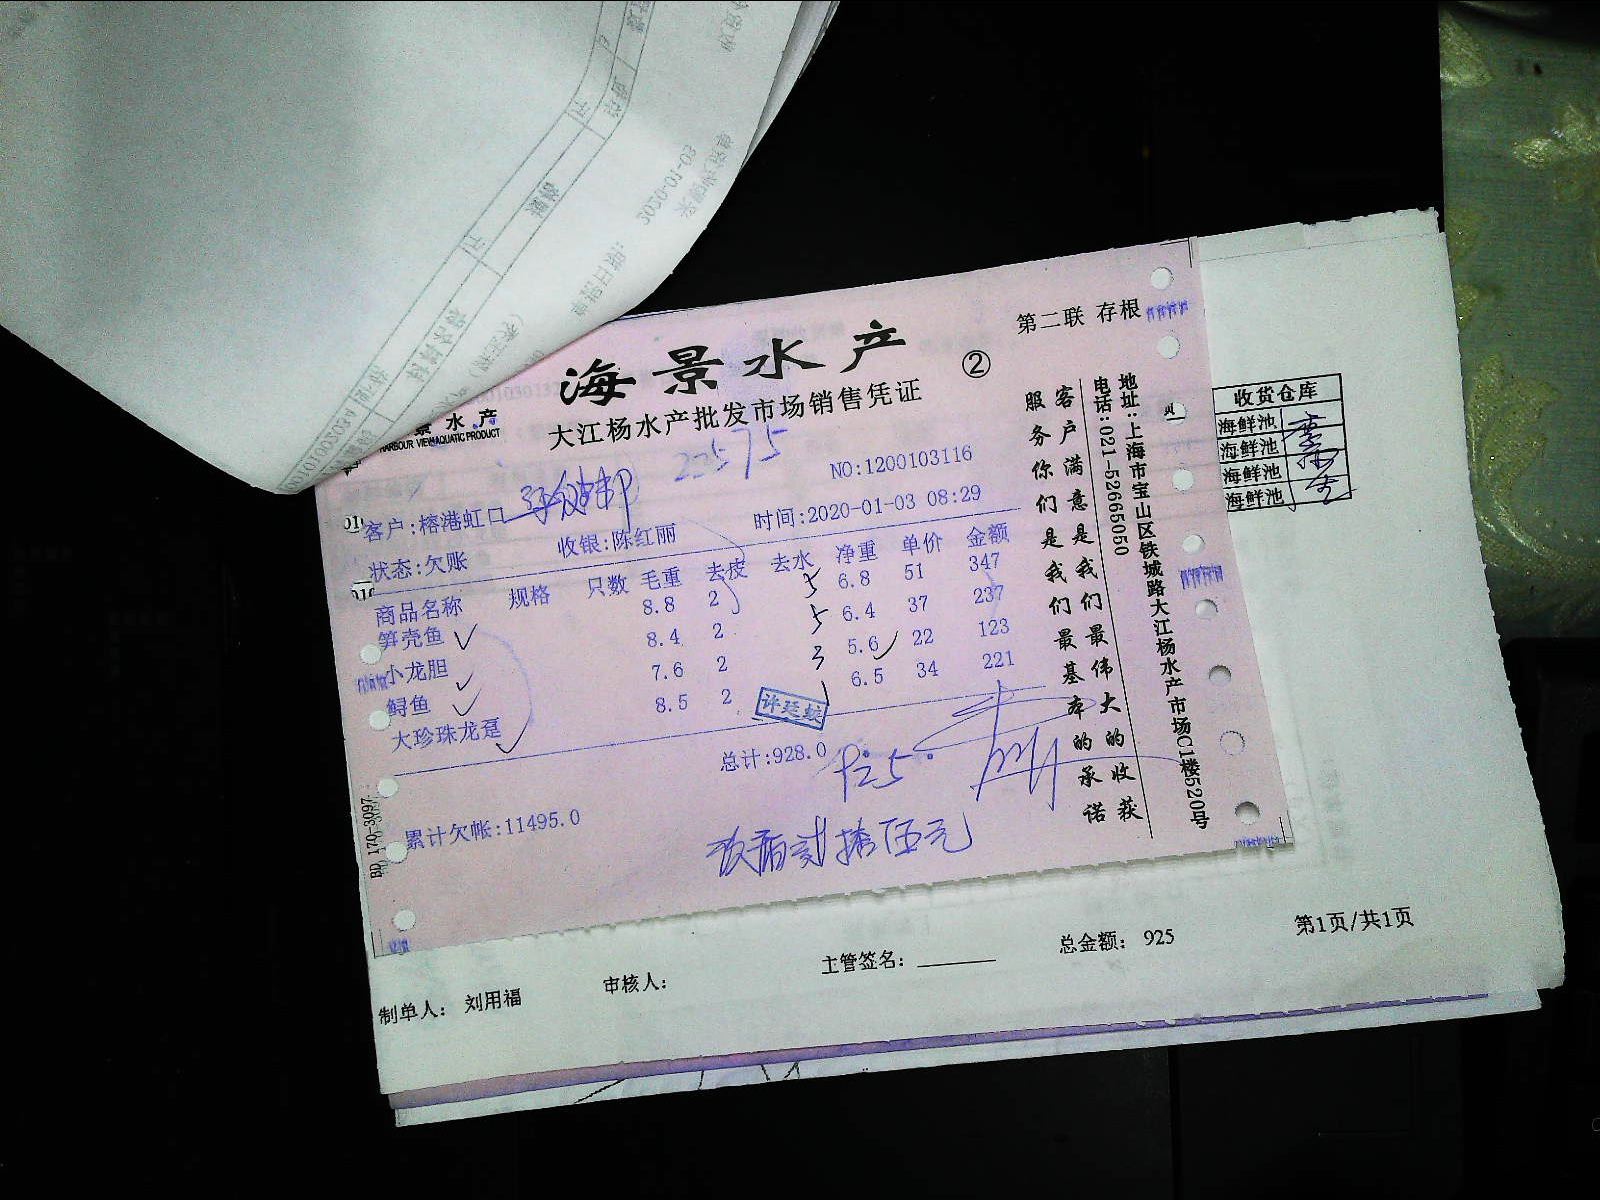 第二联 存根
海景水产
②
大江杨水产批发市场销售凭证
景水产
HARBOUR VIEW AQUATIC PRODUCT
22575
NO:1200103116
客户:榕港虹口
时间:2020-01-03 08:29
状态:欠账 收银:陈红丽
商品名称 规格 只数 毛重 去皮 去水 净重 单价 金额
笋壳鱼 8.8 2 6.8 51 347
小龙胆 8.4 2 5 6.4 37 237
鲟鱼 7.6 2 3 5.6 22 123
大珍珠龙趸 8.5 2 6.5 34 221
许廷蛟
总计:928.0
累计欠帐:11495.0
玖佰贰拾伍元
BD 170-3097
客户满意是我们最伟大的收获
服务你们是我们最基本的承诺
地址:上海市宝山区铁城路大江杨水产市场C1楼520号
电话:021-52665050
收货仓库
海鲜池
海鲜池
海鲜池
海鲜池
制单人: 刘用福 审核人: 主管签名: 总金额: 925 第1页/共1页